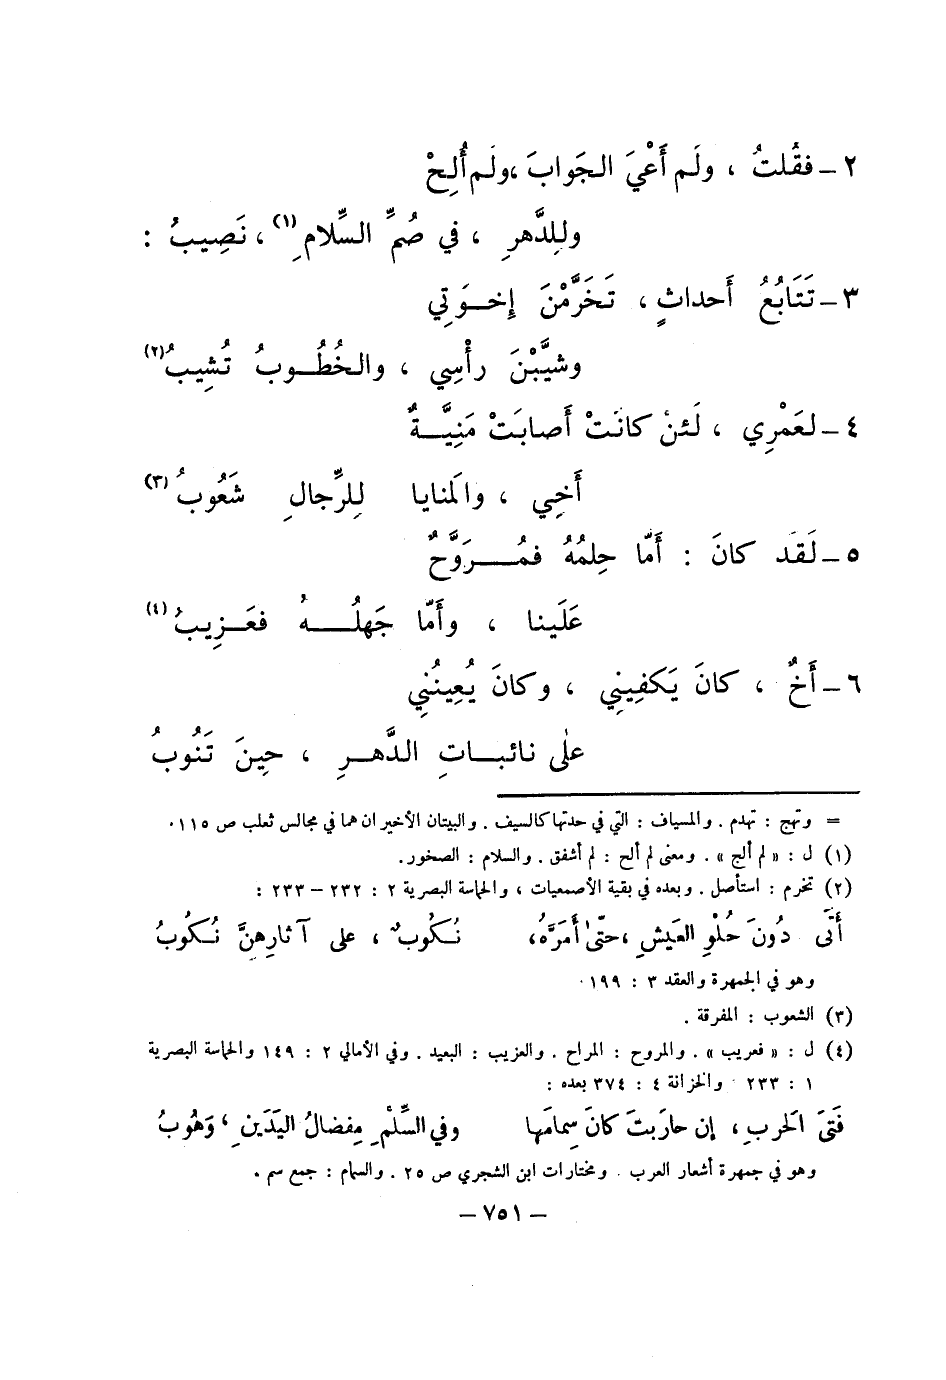 ٢ – فقُلتُ ، ولَم أَعْيَ الجَوابَ ،ولَم أُلِحْ
ولِلدَّهرِ ، في صُمِّ السِّلامِ(١) ، نَصِيبُ :
٣ – تَتَابُعُ أَحداثٍ ، تَخَرَّمْنَ إِخـوَتِي
وشيَّبْنَ رأْسِي ، والخُطُـوبُ تُشِيبُ(٢)
٤ – لعَمْرِي ، لَئنْ كانَتْ أَصابَتْ مَنِيَّـةٌ
أَخِي ، والمَنايا لِلرِّجالِ شَعُوبُ(٣)
٥ – لَقَد كانَ : أَمّا حِلمُهُ فمُـــرَوَّحٌ
عَلَينا ، وأَمّا جَهلُـــهُ فعَـزِيبُ(٤)
٦ – أَخٌ ، كانَ يَكفِينِي ، وكانَ يُعِينُنِي
علٰى نائبـاتِ الدَّهـرِ ، حِينَ تَنُوبُ
= وتهج : تهدم . والمسياف : التي في حدتها كالسيف . والبيتان الأخيران هما في مجالس ثعلب ص ١١٥ .
(١) ل : « لم ألج » . ومعنى لم ألح : لم أشفق . والسلام : الصخور .
(٢) تخرم : استأصل . وبعده في بقية الأصمعيات ، والحماسة البصرية ٢ : ٢٣٢ – ٢٣٣ :
أَتَى دُونَ حُلْوِ العَيشِ ،حتّىٰ أَمَرَّهُ، نُكُوبٌ ، على آثارِهِنَّ نُكُوبُ
وهو في الجمهرة والعقد ٣ : ١٩٩ .
(٣) الشعوب : المفرقة .
(٤) ل : « فعريب » . والمروح : المراح . والعزيب : البعيد . وفي الأمالي ٢ : ١٤٩ والحماسة البصرية
١ : ٢٣٣ . والخزانة ٤ : ٣٧٤ بعده :
فَتَى الحَربِ ، إن حارَبتَ كانَ سِمامَها وفي السِّلْمِ مِفضالُ اليَدَينِ ، وَهُوبُ
وهو في جمهرة أشعار العرب . ومختارات ابن الشجري ص ٢٥ . والسمام : جمع سم .
– ٧٥١ –